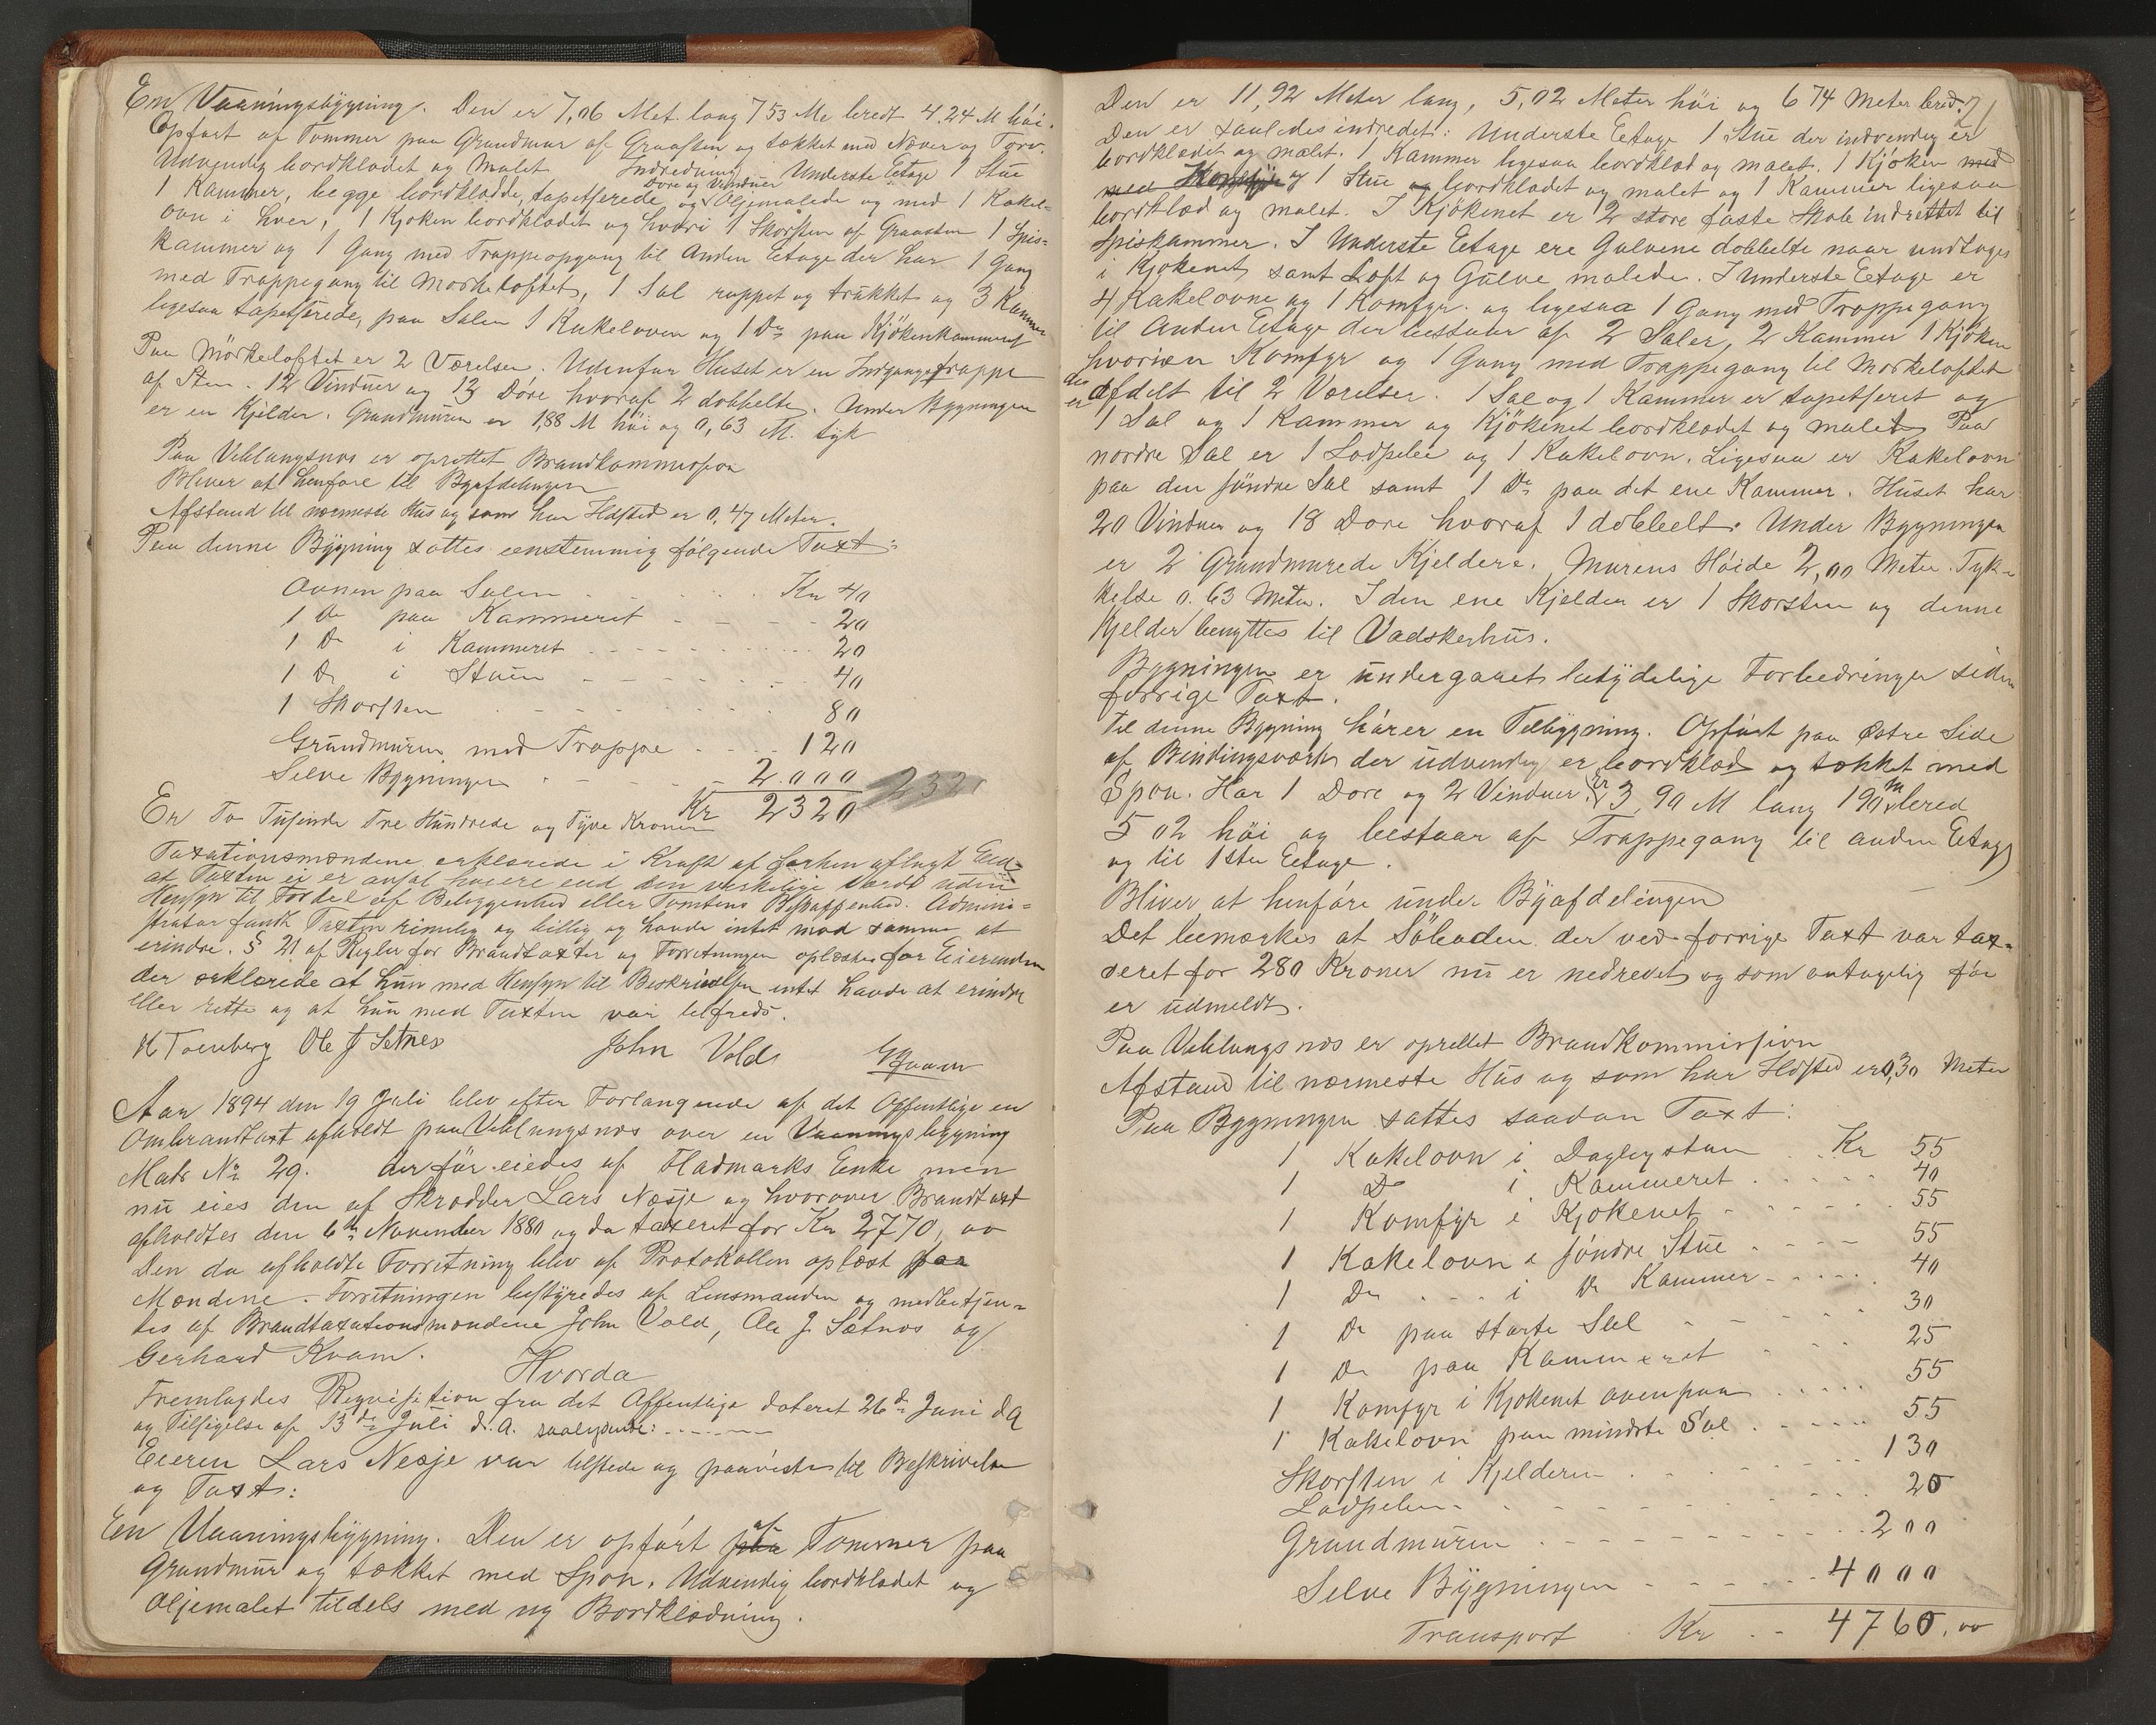 En Vaaningsbygning. Den er 7,06 Met. lang 7 53 Me bredt 4.24 M høi.
Opført af Tømmer paa Grundmur af Graasten og tækket med Næver og Torv.
Udvendig bordklædet og Malet Indredning Underste Etage 1 Stue
1 Kammer, begge bordklædde, tapetserede og Døre og Vinduer Oljemalede og med 1 Kakel-
ovn i hver, 1 Kjøken bordklædet og hvori 1 Skorsten af Graasten 1 Spis-
kammer og 1 Gang med Trappeopgang til Anden Etage der har 1 Gang
med Trappegang til Mørkeloftet, 1 Sal rappet og trukket og 3 Kammer
ligesaa tapetserede, paa Salen 1 Kakelovn og 1 Do paa Kjøkenkammeret
Paa Mørkeloftet er 2 Værelser. Udenfor Huset er en Indgangstrappe
af Sten. 12 Vinduer og 13 Døre hvoraf 2 dobbelte. Under Bygningen
er en Kjelder. Grundmuren er 1,88 M høi og 0,63 M. tyk
Paa Veblungsnæs er oprettet Brandkommission
Bliver at henføre til Byafdelingen
Afstand til nærmeste Hus og som har Ildsted er 0,47 Meter.
Paa denne Bygning sattes eenstemmig følgende Taxt:
Ovnen paa Salen Kr 40
1 Do paa Kammeret 20
1 Do i Kammeret 20
1 Do i Stuen 40
1 Skorsten 80
Grundmuren med Trappe 120
Selve Bygningen 2.000 232
Kr 2320
Er To Tusinde Tre Hundrede og Tyve Kroner
Taxationsmændene erklærede i Kraft af forhen aflagt Eed
at Taxten ei er ansat høiere end den virkelige Værdi uden
Hensyn til Fordel af Beliggenhed eller Tomtens Beskaffenhed. Admini-
strator fandt Taxten rimelig og billig og havde intet mod samme at
erindre. § 21 af Regler for Brandtaxter og Forretningen oplæstes for Eierinden
der erklærede at hun med Hensyn til Beskrivelsen intet havde at erindre
eller rette og at hun med Taxten var tilfreds.
Ole J Setnes John Vold GKvam
Aar 1894 den 19 Juli blev efter Forlangende af det Offentlige en
Ombrandtaxt afholdt paa Veblungsnæs over en Vaaningsbygning
Matr No 29. der før eiedes af Fladmarks Enke men
nu eies den af Skrædder Lars Næsje og hvorover Brandtaxt
afholdtes den 6te November 1880 og da taxeret for Kr 2770,00
Den da afholdte Forretning blev af Protokollen oplæst for
Mændene. Forretningen bestyredes af Lensmanden og medbetjen-
tes af Brandtaxationsmændene John Vold, Ole J. Sætnes og
Gerhard Kvam.
Hvorda
Fremlagdes Reqvisition fra det Offentlige dateret 26de Juni d A
og Tilsigelse af 13de Juli d. A. saalydende:
Eieren Lars Nesje var tilstede og paaviste til Beskrivelse
og Taxt:
En Vaaningsbygning. Den er opført paa af Tømmer paa
Grundmur og tækket med Spon. Udvendig bordklædet og
Oljemalet tildels med ny Bordklædning.
71
Den er 11,92 Meter lang, 5,02 Meter høi og 6 74 Meter bred.
Den er saaledes indredet: Underste Eetage 1 Stue der indvendig er
bordklædet og malet. 1 Kammer ligesaa bordklæd og malet. 1 Kjøken med
med og 1 Stue og bordklædet og malet og 1 Kammer ligesaa
bordklæd og malet. I Kjøkenet er 2 store faste Skabe indrettet til
Spiskammer. I Underste Eetage ere Gulvene dobbelte naar undtages
i Kjøkenet samt Loft og Gulve malede. I Underste Eetage er
4 Kakelovne og 1 Komfyr og ligesaa 1 Gang med Trappegang
til Anden Eetage der bestaar af 2 Saler, 2 Kammer 1 Kjøken
hvori er Komfyr og 1 Gang med Trappegang til Mørkeloftet
der er afdelt til 2 Værelser. 1 Sal og 1 Kammer er tapetseret og
1 Sal og 1 Kammer og Kjøkenet bordklædet og malet Paa
nordre Sal er 1 Lodpibe og 1 Kakelovn. Ligesaa er Kakelovn
paa den søndre Sal samt 1 Do paa det ene Kammer. Huset har
20 Vinduer og 18 Døre hvoraf 1 dobbelt. Under Bygningen
er 2 Grundmurede Kjeldere. Murens Høide 2,00 Meter. Tyk-
kelse 0.63 Meter. I den ene Kjelder er 1 Skorsten og denne
Kjelder benyttes til Vadskerhus.
Bygningen er undergaaet betydelige Forbedringer siden
forrige Taxt.
Til denne Bygning hører en Tilbygning. Opført paa Østre Side
af Bindingsværk der udvendig er bordklæd og tækket med
Spon. Har 1 Døre og 2 Vinduer. Er 3,90 M lang 1 90 m bred
5 02 høi og bestaar af Trappegang til anden Etage
og til 1ste Eetage.
Bliver at henføre under Byafdelingen
Det bemærkes at Søboden der ved forrige Taxt var tax-
eret for 280 Kroner nu er nedrevet og som antagelig før
er udmeldt.
Paa Veblungsnæs er oprettet Brandkommission
Afstand til nærmeste Hus og som har Ildsted er 0,30 Meter
Paa Bygningen sattes saadan Taxt:
1 Kakelovn i Dagligstuen Kr 55
1 Do i Kammeret 40
1 Komfyr i Kjøkenet 55
1 Kakelovn i søndre Stue 55
1 Do i Do Kammer 40
1 Do paa største Sal 30
1 Do paa Kammeret 25
1 Komfyr i Kjøkenet ovenpaa 55
1 Kakelovn paa mindste Sal 55
Skorsten i Kjelderen 130
Lodpiben 20
Grundmuren 200
Selve Bygningen 4000
Transport Kr 4760,00